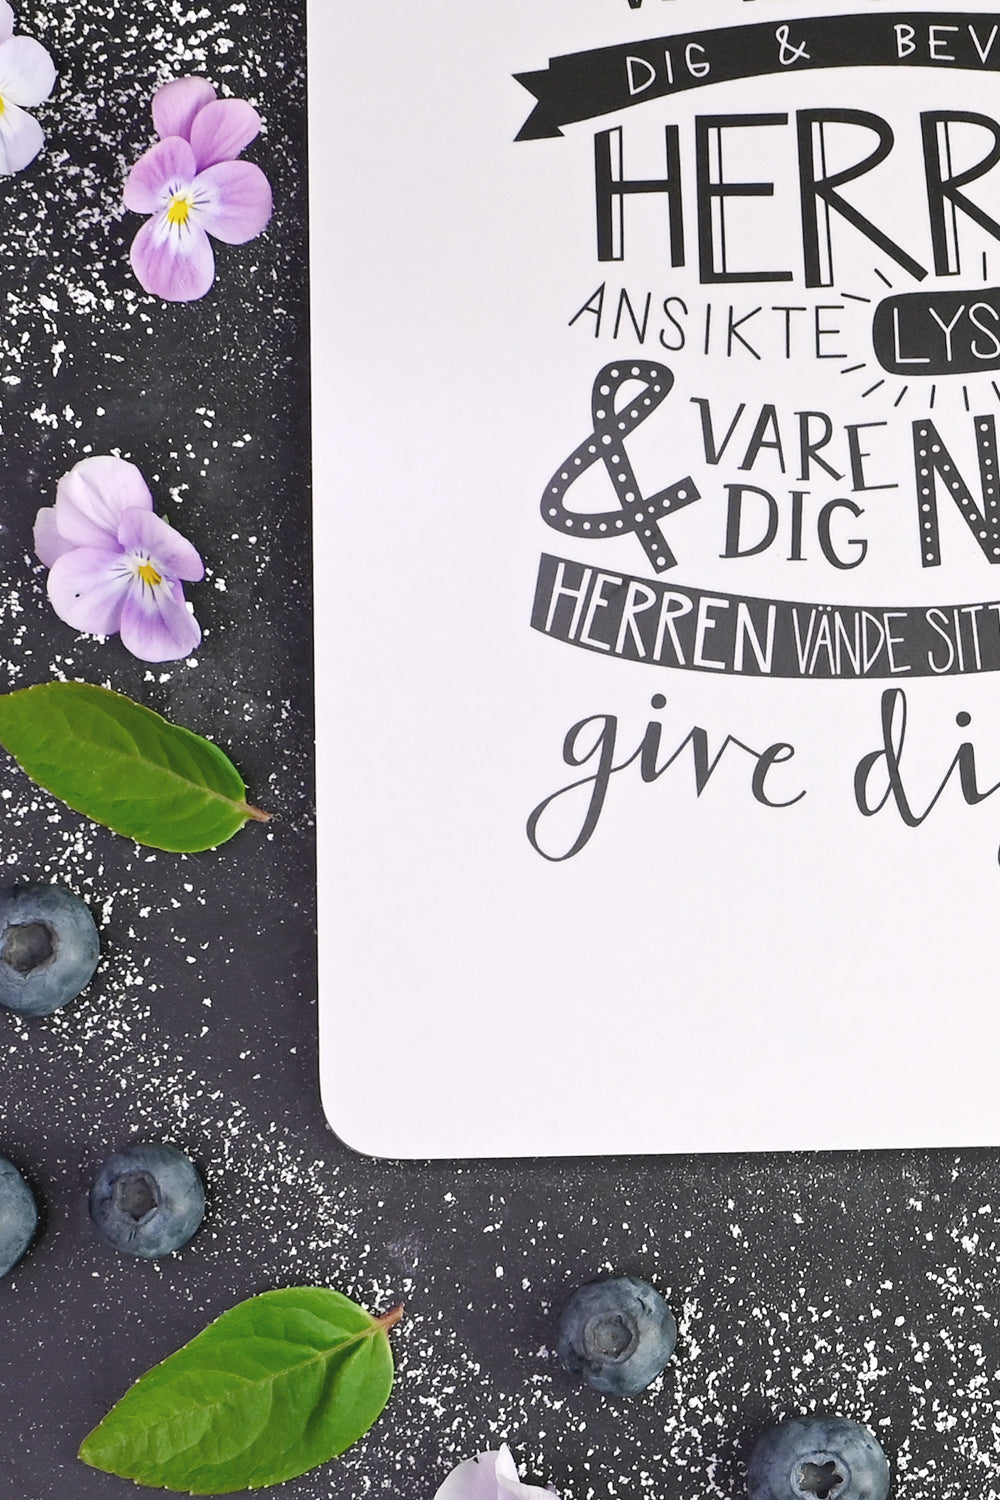 DIG & BEV
HERR
ANSIKTE LYS
& VARE DIG N
HERREN VÄNDE SITT
give dig